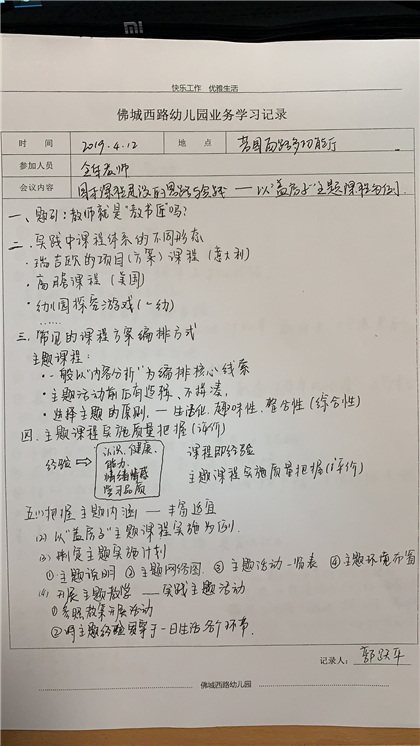 快乐工作 优雅生活
佛城西路幼儿园业务学习记录
时间 2019.4.12 地点
参加人员 全体教师
会议内容 园本课程建设的思路与实践——以“盖房子”主题课程为例.
一、题引:教师就是“教书匠”吗?
二、实践中课程体系的不同形态
·瑞吉欧的项目(方案)课程(意大利)
·高瞻课程(美国)
·幼儿园探究游戏(一幼)
……
三、常见的课程方案编排方式
主题课程:
·一般以“内容分析”为编排核心线索
·主题活动前后有逻辑、不拼凑,
·选择主题的原则.—生活化.趣味性.整合性(综合性)
四.主题课程实施质量把握(评价)
经验⇒ 认识、健康、 能力. 情绪情感 学习品质
课程即经验
主题课程实施质量把握(评价)
五(1)把握主题内涵——丰富适宜
(2)以“盖房子”主题课程实施为例.
(3)制定主题实施计划
①主题说明 ②主题网络图.③主题活动一览表 ④主题环境布置
(4)开展主题教学——实践主题活动
①参照教案开展活动
②将主题经验贯穿于一日生活各个环节.
记录人: 郭跃平
佛城西路幼儿园